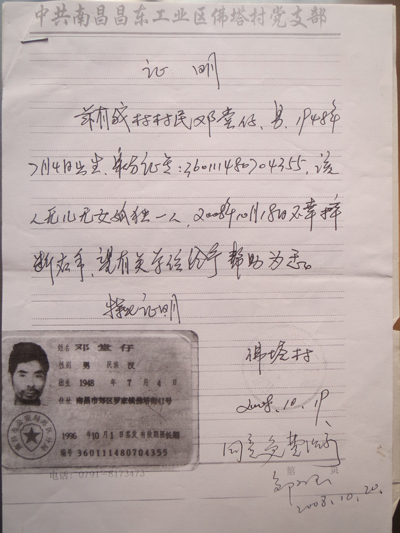 中共南昌昌东工业区佛塔村党支部
证 明
兹有我村村民邓堂仔、男、1948年
7月4日出生,身份证号:360111480704355,该
人无儿无女孤独一人,2008年10月18日不幸摔
断右手,望有关单位给予帮助为感。
特此证明
佛塔村
2008.10.19.
姓名 邓堂仔
性别 男 民族 汉
出生 1948 年 7 月 4 日
住址 南昌市郊区罗家镇佛塔村
1996 年10月1日签发 有效期限长期
编号 360111480704355
电话:0791-8173473
第 页
同意免费治疗
2008.10.20.